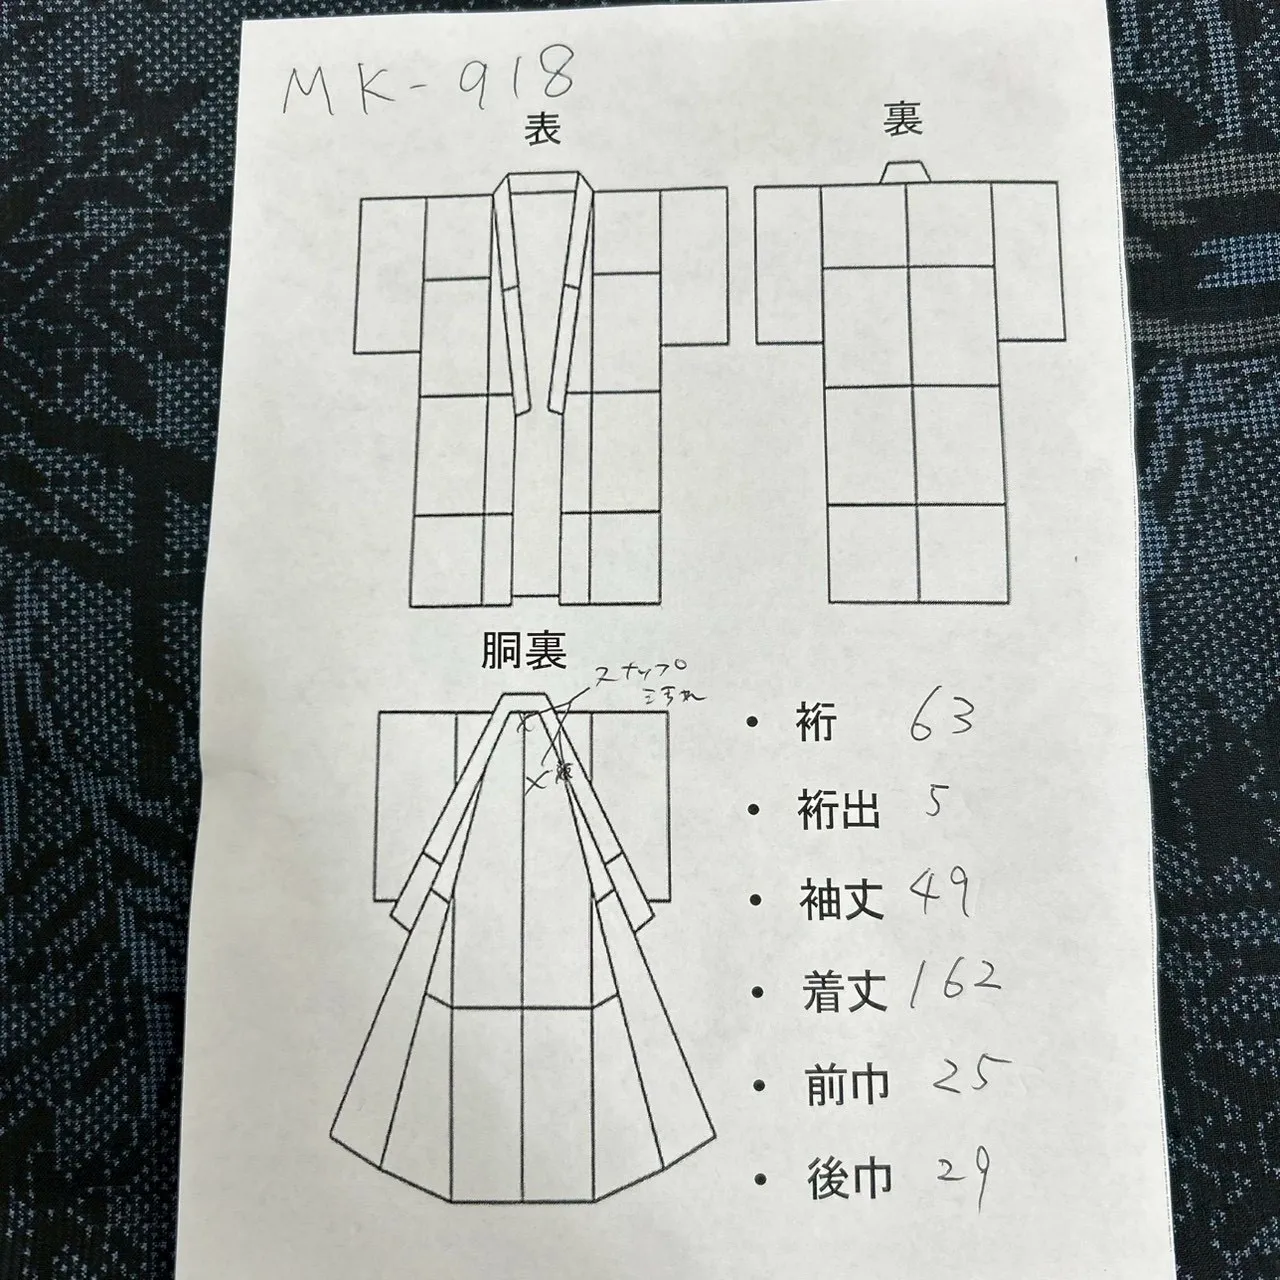 MK-918
表
裏
胴裏
スナップ
汚れ
・裄 63
・裄出 5
・袖丈 49
・着丈 162
・前巾 25
・後巾 29